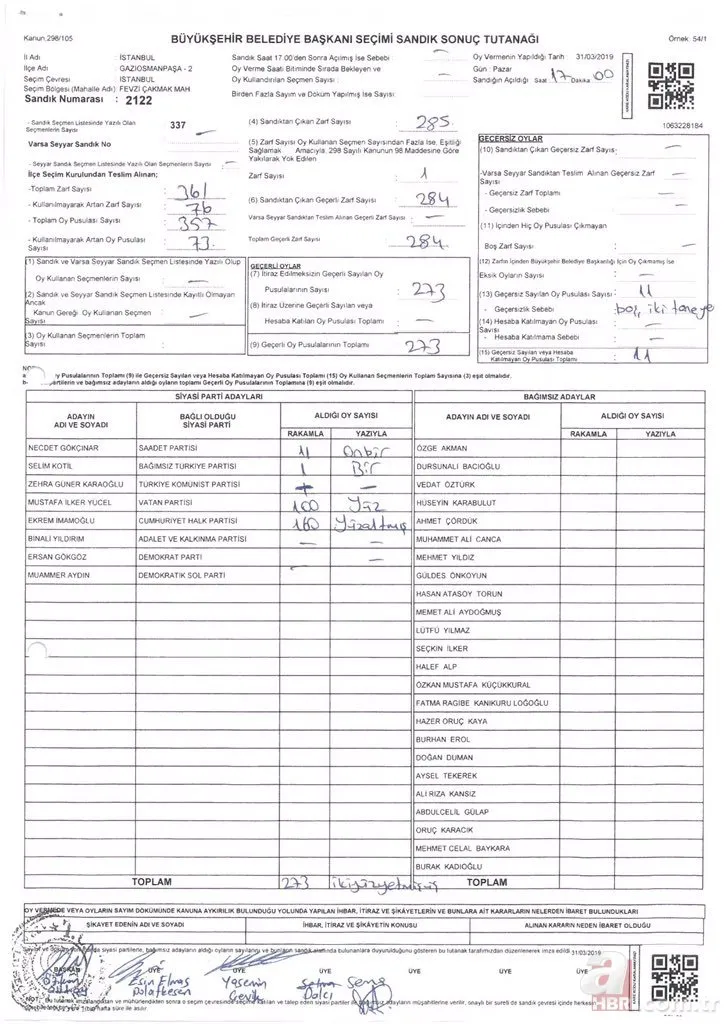 Kanun:298/105
BÜYÜKŞEHİR BELEDİYE BAŞKANI SEÇİMİ SANDIK SONUÇ TUTANAĞI
Örnek: 54/1
İl Adı : İSTANBUL
İlçe Adı : GAZİOSMANPAŞA - 2
Seçim Çevresi : İSTANBUL
Seçim Bölgesi (Mahalle Adı) : FEVZİ ÇAKMAK MAH
Sandık Numarası : 2122
Sandık Saat 17.00'den Sonra Açılmış İse Sebebi
Oy Verme Saati Bitiminde Sırada Bekleyen ve
Oy Kullandırılan Seçmen Sayısı : —
Birden Fazla Sayım ve Döküm Yapılmış İse Sayısı:
Oy Vermenin Yapıldığı Tarih 31/03/2019
Gün : Pazar
Sandığın Açıldığı Saat 17 Dakika 00
1063228184
- Sandık Seçmen Listesinde Yazılı Olan Seçmenlerin Sayısı : 337
Varsa Seyyar Sandık No —
- Seyyar Sandık Seçmen Listesinde Yazılı Olan Seçmenlerin Sayısı : —
İlçe Seçim Kurulundan Teslim Alınan;
-Toplam Zarf Sayısı : 361
- Kullanılmayarak Artan Zarf Sayısı : 76
- Toplam Oy Pusulası Sayısı : 357
- Kullanılmayarak Artan Oy Pusulası Sayısı : 73
(4) Sandıktan Çıkan Zarf Sayısı : 285
(5) Zarf Sayısı Oy Kullanan Seçmen Sayısından Fazla İse, Eşitliği
Sağlamak Amacıyla, 298 Sayılı Kanunun 98 Maddesine Göre
Yakılarak Yok Edilen
Zarf Sayısı : 1
(6) Sandıktan Çıkan Geçerli Zarf Sayısı : 284
Varsa Seyyar Sandıktan Teslim Alınan Geçerli Zarf Sayısı : —
Toplam Geçerli Zarf Sayısı : 284
GEÇERSİZ OYLAR
(10) Sandıktan Çıkan Geçersiz Zarf Sayısı : —
-Varsa Seyyar Sandıktan Teslim Alınan Geçersiz Zarf Sayısı : —
- Geçersiz Zarf Toplamı : —
- Geçersizlik Sebebi : —
(11) İçinden Hiç Oy Pusulası Çıkmayan
Boş Zarf Sayısı : —
(12) Zarfın İçinden Büyükşehir Belediye Başkanlığı İçin Oy Çıkmamış İse
Eksik Oyların Sayısı : —
(13) Geçersiz Sayılan Oy Pusulası Sayısı : 11
- Geçersizlik Sebebi : boş, iki taneye
(14) Hesaba Katılmayan Oy Pusulası Sayısı : —
- Hesaba Katılmama Sebebi : —
(15) Geçersiz Sayılan veya Hesaba Katılmayan Oy Pusulası Toplamı : 11
(1) Sandık ve Varsa Seyyar Sandık Seçmen Listesinde Yazılı Olup
Oy Kullanan Seçmenlerin Sayısı : —
(2) Sandık ve Seyyar Sandık Seçmen Listesinde Kayıtlı Olmayan
Ancak
Kanun Gereği Oy Kullanan Seçmen Sayısı : —
(3) Oy Kullanan Seçmenlerin Toplam
Sayısı :
GEÇERLİ OYLAR
(7) İtiraz Edilmeksizin Geçerli Sayılan Oy
Pusulalarının Sayısı : 273
(8) İtiraz Üzerine Geçerli Sayılan veya
Hesaba Katılan Oy Pusulası Toplamı : —
(9) Geçerli Oy Pusulalarının Toplamı : 273
y Pusulalarının Toplamı (9) ile Geçersiz Sayılan veya Hesaba Katılmayan Oy Pusulası Toplamı (15) Oy Kullanan Seçmenlerin Toplam Sayısına (3) eşit olmalıdır.
partilerin ve bağımsız adayların aldığı oyların toplamı Geçerli Oy Pusulalarının Toplamına (9) eşit olmalıdır.
SİYASİ PARTİ ADAYLARI
BAĞIMSIZ ADAYLAR
ADAYIN ADI VE SOYADI
BAĞLI OLDUĞU SİYASİ PARTİ
ALDIĞI OY SAYISI
RAKAMLA YAZIYLA
ADAYIN ADI VE SOYADI
ALDIĞI OY SAYISI
RAKAMLA YAZIYLA
NECDET GÖKÇINAR SAADET PARTİSİ 11 Onbir
SELİM KOTİL BAĞIMSIZ TÜRKİYE PARTİSİ 1 Bir
ZEHRA GÜNER KARAOĞLU TÜRKİYE KOMÜNİST PARTİSİ — —
MUSTAFA İLKER YÜCEL VATAN PARTİSİ 100 Yüz
EKREM İMAMOĞLU CUMHURİYET HALK PARTİSİ 160 Yüzaltmış
BİNALİ YILDIRIM ADALET VE KALKINMA PARTİSİ — —
ERSAN GÖKGÖZ DEMOKRAT PARTİ —
MUAMMER AYDIN DEMOKRATİK SOL PARTİ —
ÖZGE AKMAN
DURSUNALİ BACIOĞLU
VEDAT ÖZTÜRK
HÜSEYİN KARABULUT
AHMET ÇÖRDÜK
MUHAMMET ALİ CANCA
MEHMET YILDIZ
GÜLDES ÖNKOYUN
HASAN ATASOY TORUN
MEMET ALİ AYDOĞMUŞ
LÜTFÜ YILMAZ
SEÇKİN İLKER
HALEF ALP
ÖZKAN MUSTAFA KÜÇÜKKURAL
FATMA RAGIBE KANIKURU LOĞOĞLU
HAZER ORUÇ KAYA
BURHAN EROL
DOĞAN DUMAN
AYSEL TEKEREK
ALİ RIZA KANSIZ
ABDULCELİL GÜLAP
ORUÇ KARACIK
MEHMET CELAL BAYKARA
BURAK KADIOĞLU
TOPLAM 273
TOPLAM
OY VERMEDE VEYA OYLARIN SAYIM DÖKÜMDE KANUNA AYKIRILIK BULUNDUĞU YOLUNDA YAPILAN İHBAR, İTİRAZ VE ŞİKAYETLERİN VE BUNLARA AİT KARARLARIN NELERDEN İBARET BULUNDUKLARI
ŞİKAYET EDENİN ADI VE SOYADI
İHBAR, İTİRAZ VE ŞİKAYETİN KONUSU
ALINAN KARARIN NEDEN İBARET OLDUĞU
siyasi partilerle, bağımsız adayların aldığı oyların sayılarını ve bunun sandık alanında bulunanlara duyurulduğunu gösteren bu tutanak tarafımızdan düzenlenerek imza edildi 31/03/2019
BAŞKAN ÜYE ÜYE ÜYE ÜYE ÜYE ÜYE
Esin Elmas
Yasemin
Dalcı
a
HBR.com.tr